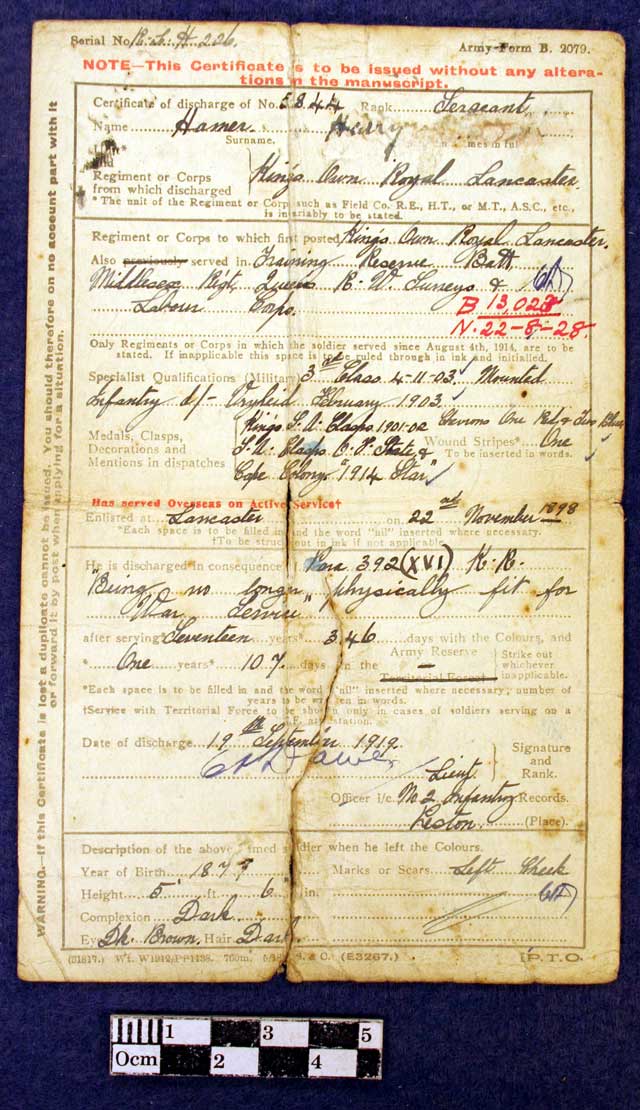 Serial No R.L.H. 226. Army Form B. 2079.
NOTE—This Certificate is to be issued without any altera-
tions in the manuscript.
Certificate of discharge of No. 5844 Rank Sergeant
Name Hamer Harry
Surname. names in full
Unit
and
Regiment or Corps
from which discharged King's Own Royal Lancaster.
* The unit of the Regiment or Corps such as Field Co. R.E., H.T., or M.T., A.S.C., etc.,
is invariably to be stated.
Regiment or Corps to which first posted King's Own Royal Lancaster.
Also previously served in Training Reserve Batt
Middlesex Regt, Queens R. W. Surreys &
Labour Corps.
B 13,028
N. 22-8-28.
Only Regiments or Corps in which the soldier served since August 4th, 1914, are to be
stated. If inapplicable this space is to be ruled through in ink and initialled.
Specialist Qualifications (Military) 3rd Class 4-11-03. Mounted
Infantry d/- Vryheid February 1903.
King's S.A. Clasps 1901-02 Chevrons One Red & Two Blue
Medals, Clasps,
Decorations and
Mentions in dispatches
S.A. Clasps O.F. State &
Cape Colony "1914 Star"
Wound Stripes* One
To be inserted in words.
Has served Overseas on Active Service†
Enlisted at Lancaster on 22nd November 1898
*Each space is to be filled in and the word "nil" inserted where necessary.
†To be struck out in ink if not applicable.
He is discharged in consequence Para 392 (XVI) K.R.
"Being no longer physically fit for
War Service"
after serving Seventeen years* 346 days with the Colours, and
* One years* 107 days in the
Army Reserve
Territorial Force
Strike out
whichever
inapplicable.
*Each space is to be filled in and the word "nil" inserted where necessary; number of
years is to be written in words.
†Service with Territorial Force to be shown only in cases of soldiers serving on a
T.F. attestation.
Date of discharge 19th September 1919.
Lieut
Signature
and
Rank.
Officer i/c. No 2 Infantry Records.
Preston (Place).
Description of the above-named soldier when he left the Colours.
Year of Birth 1879 Marks or Scars Left Cheek
Height 5 ft. 6 in.
Complexion Dark
Eyes Dk. Brown. Hair Dark
(31817.) Wt. W1912/PP1138. 750m. & Co. (E3267.) [P.T.O.
WARNING.—If this Certificate is lost a duplicate cannot be issued. You should therefore on no account part with it
or forward it by post when applying for a situation.
0cm 1 2 3 4 5